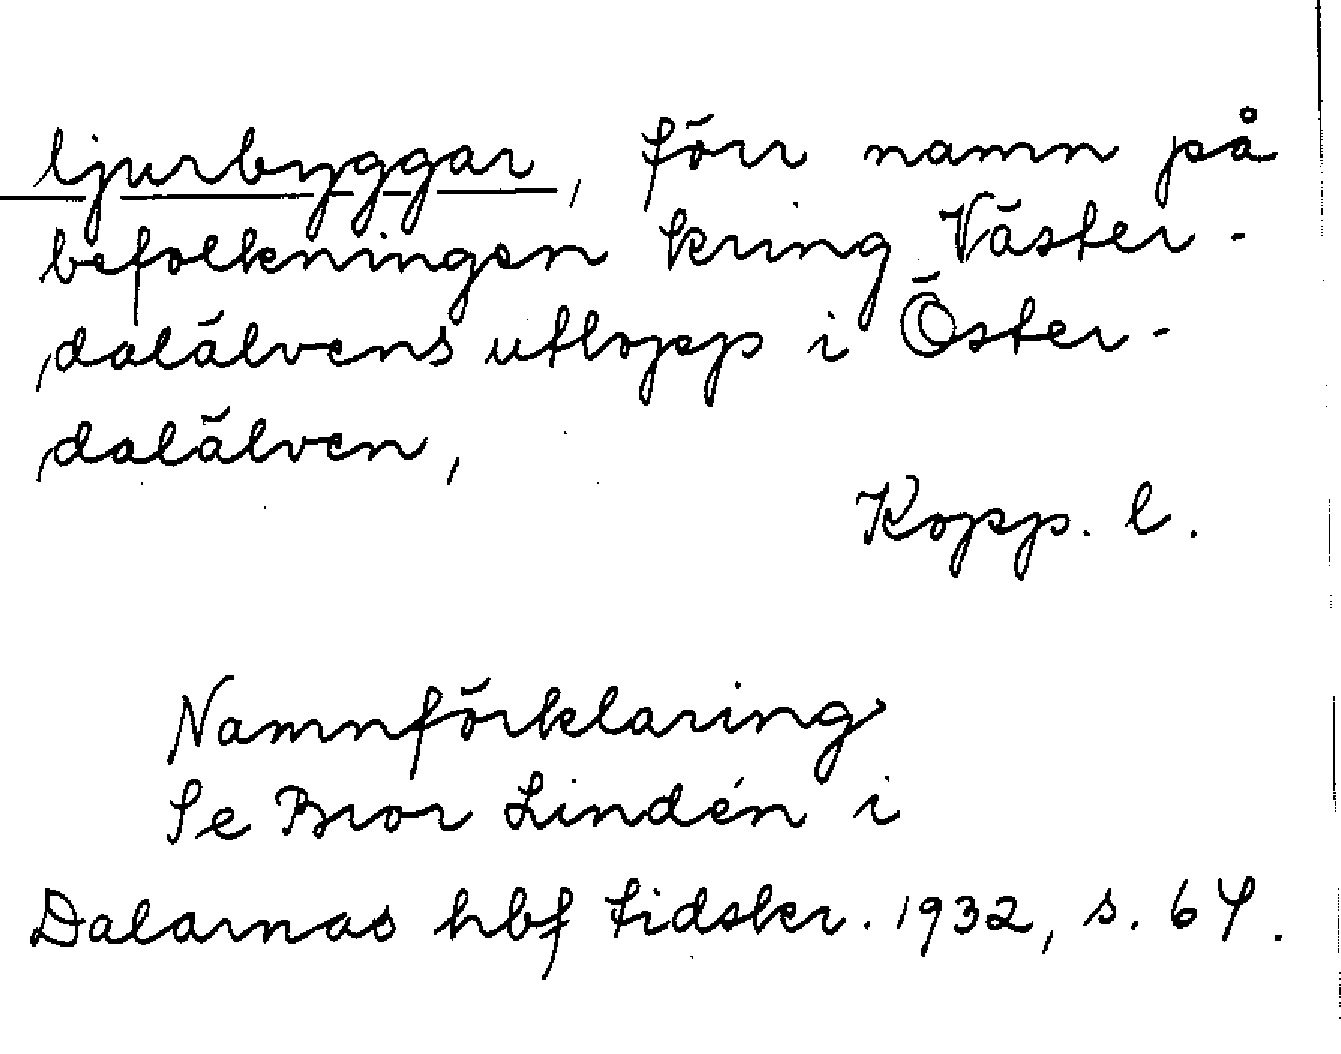 ljurbyggar, förr namn på
befolkningen kring Väster-
dalälvens utlopp i Öster-
dalälven,
Kopp. l.
Namnförklaring
Se Bror Lindén i
Dalarnas hbf tidskr. 1932, s. 64.